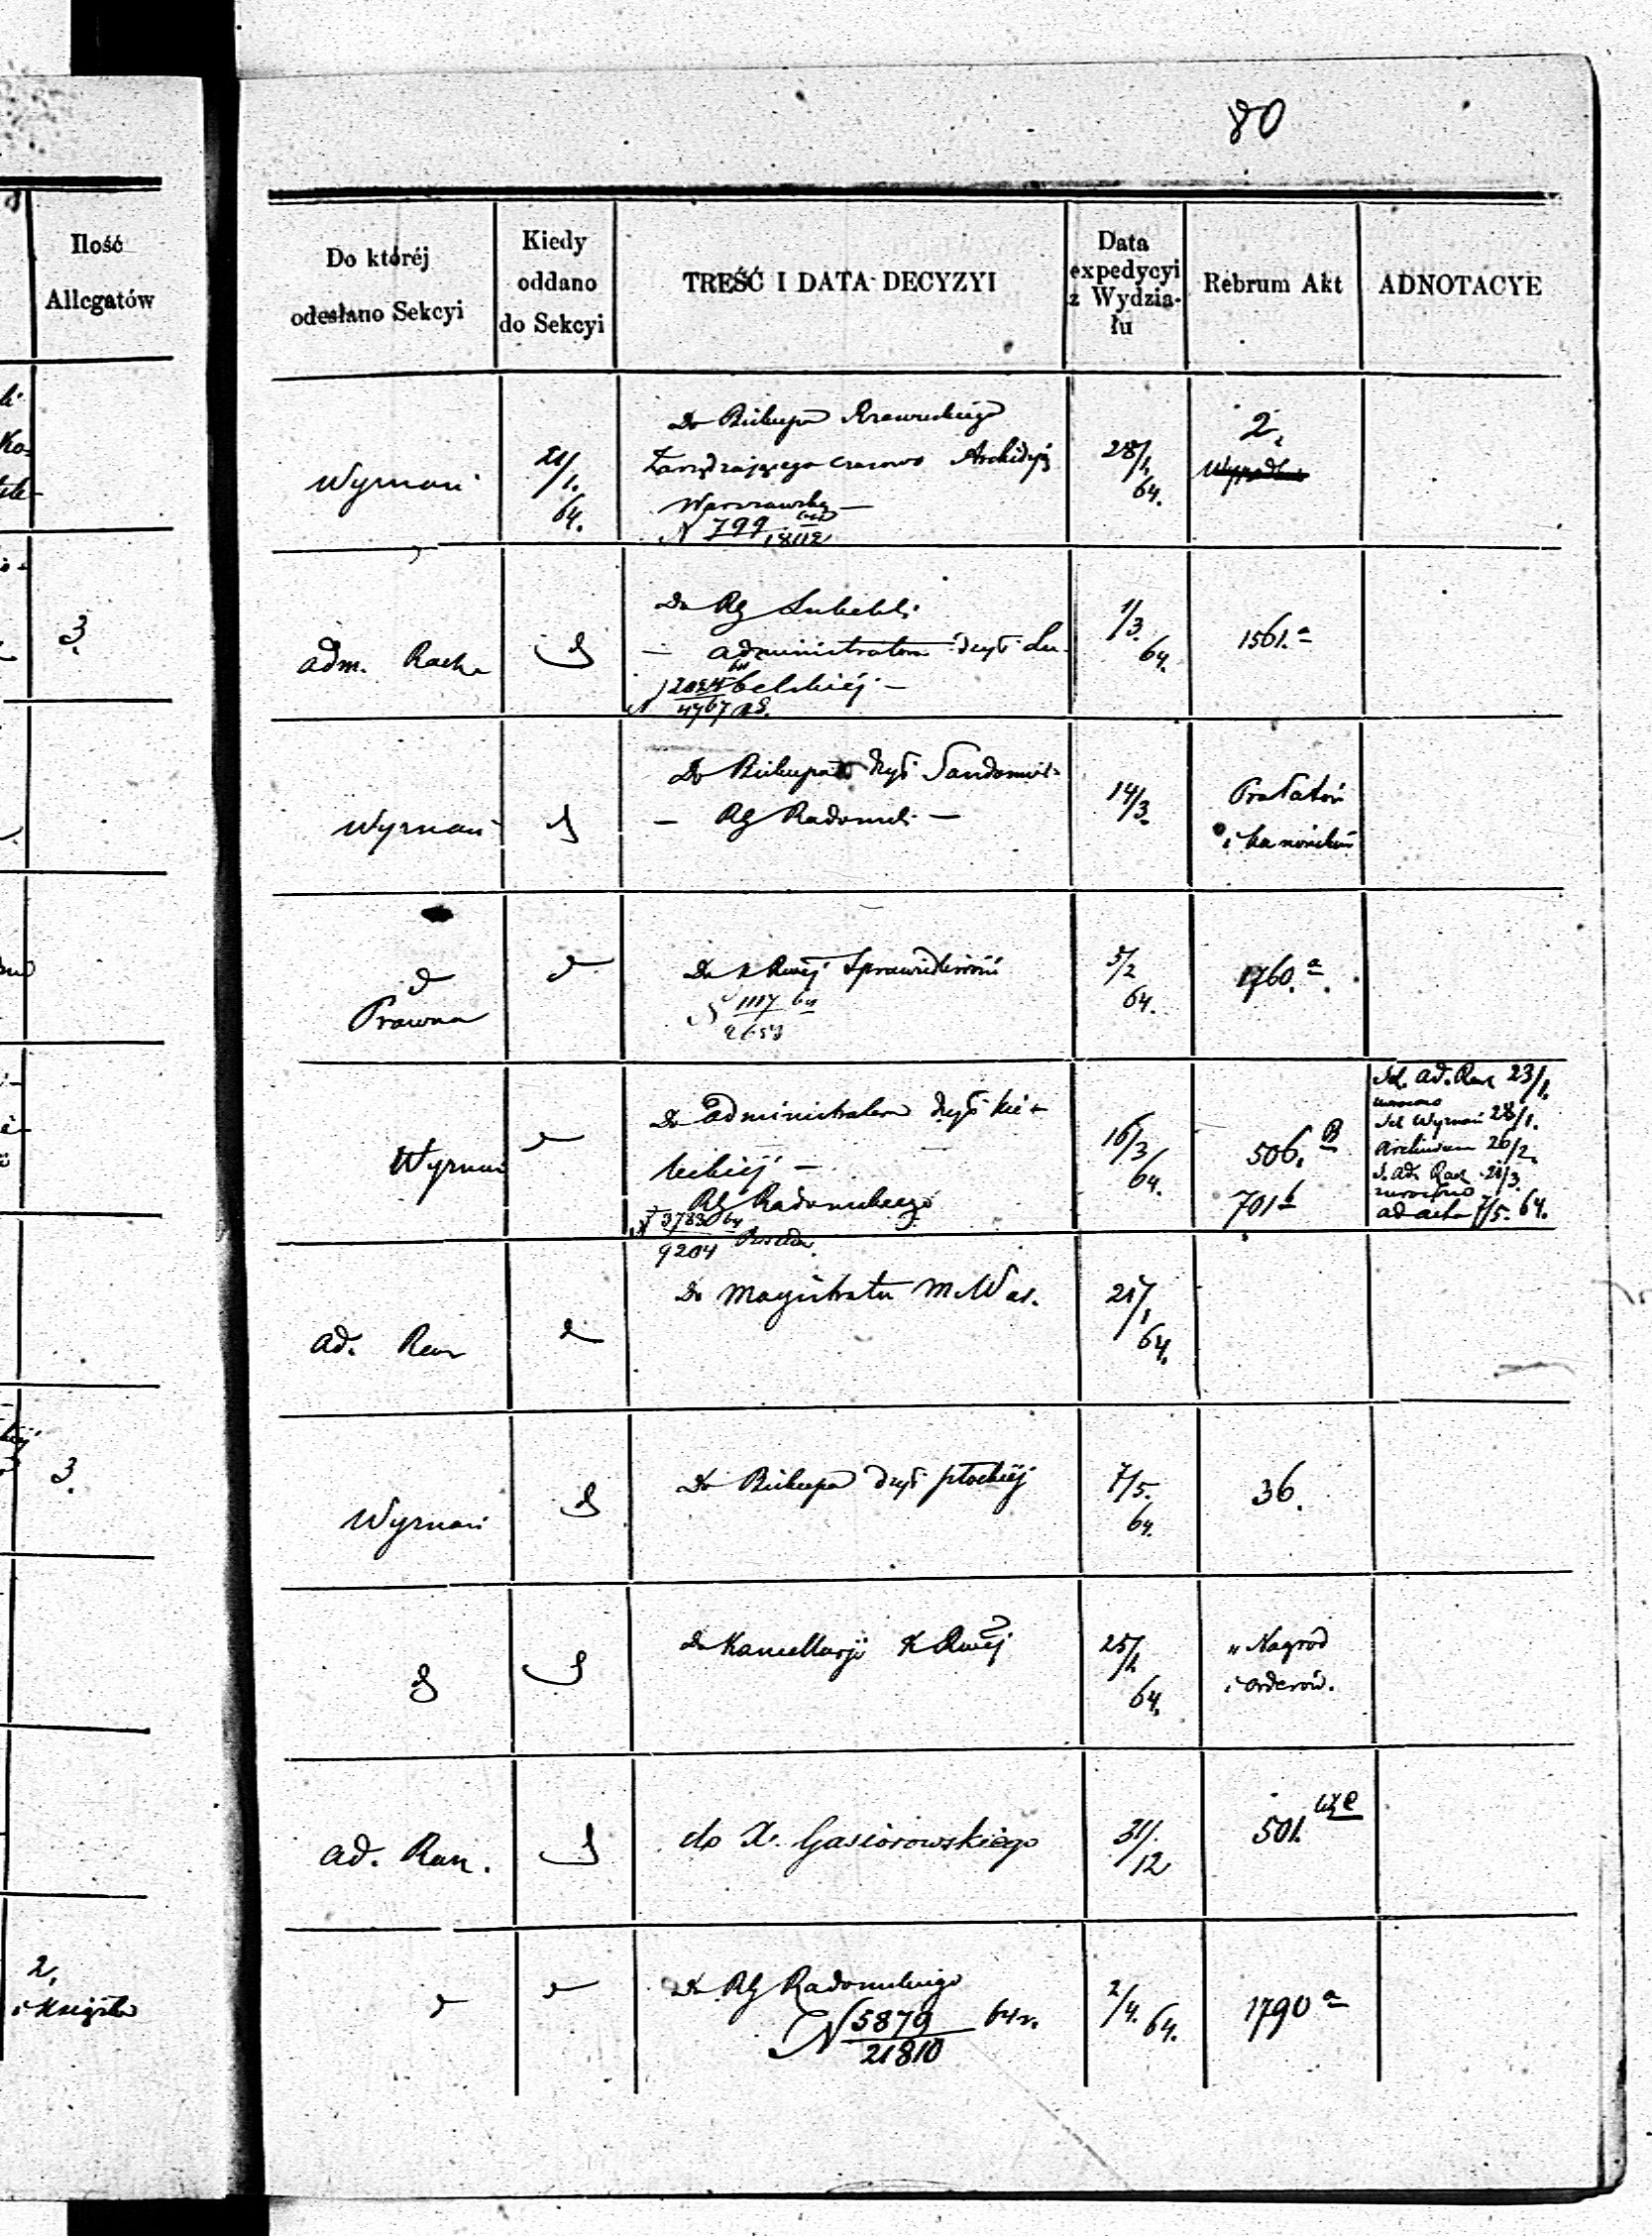 80
Ilość
Allegatów
Do któréj
odesłano Sekcyi
Kiedy
oddano
do Sekcyi
TREŚĆ I DATA DECYZYI
Data
expedycyi
z Wydzia-
łu
Rebrum Akt
ADNOTACYE
Wyznań
21/1.
64.
Do Biskupa Rzewuskiego
Zarządzającego czasowo Archidyj
Warszawską —
N 799
28/1
64.
2.
3.
adm. Rach
Do RG Lubelsk:
— administratora dyec Lu-
belskiéj —
4767
1/3.
64.
1561. a
Wyznań
Do Biskupa dyec Sandomir
— RG Radomsk —
14/3.
Prałatów
i kanoników
Prawna
Do K Rząej Sprawiedliwości
N 1117
5/2
64.
1760. a
Wyznań
Do administratora dyec kie
leckiéj —
RG Radomskiego
N 3783
9204
16/3
64.
506. B
701 b
Sek. ad. Rach 23/1.
Sek Wyznań 28/1.
Archiwum 26/2.
S. ad. Rach 21/3.
zwrócono
ad acta 7/5. 64.
ad. Rach
Do Magistratu M. War.
64.
3.
Wyznań
Do Biskupa dyec płockiéj
7/5.
64.
36.
do Kancellaryi K Rząej
25/1
64.
„ Nagród
i orderów.
ad. Rach.
do X. Gąsiorowskiego
31/12
501.
2,
i książka
Do RG Radomskiego
N 5879 64 r.
21810
2/4. 64.
1790 a